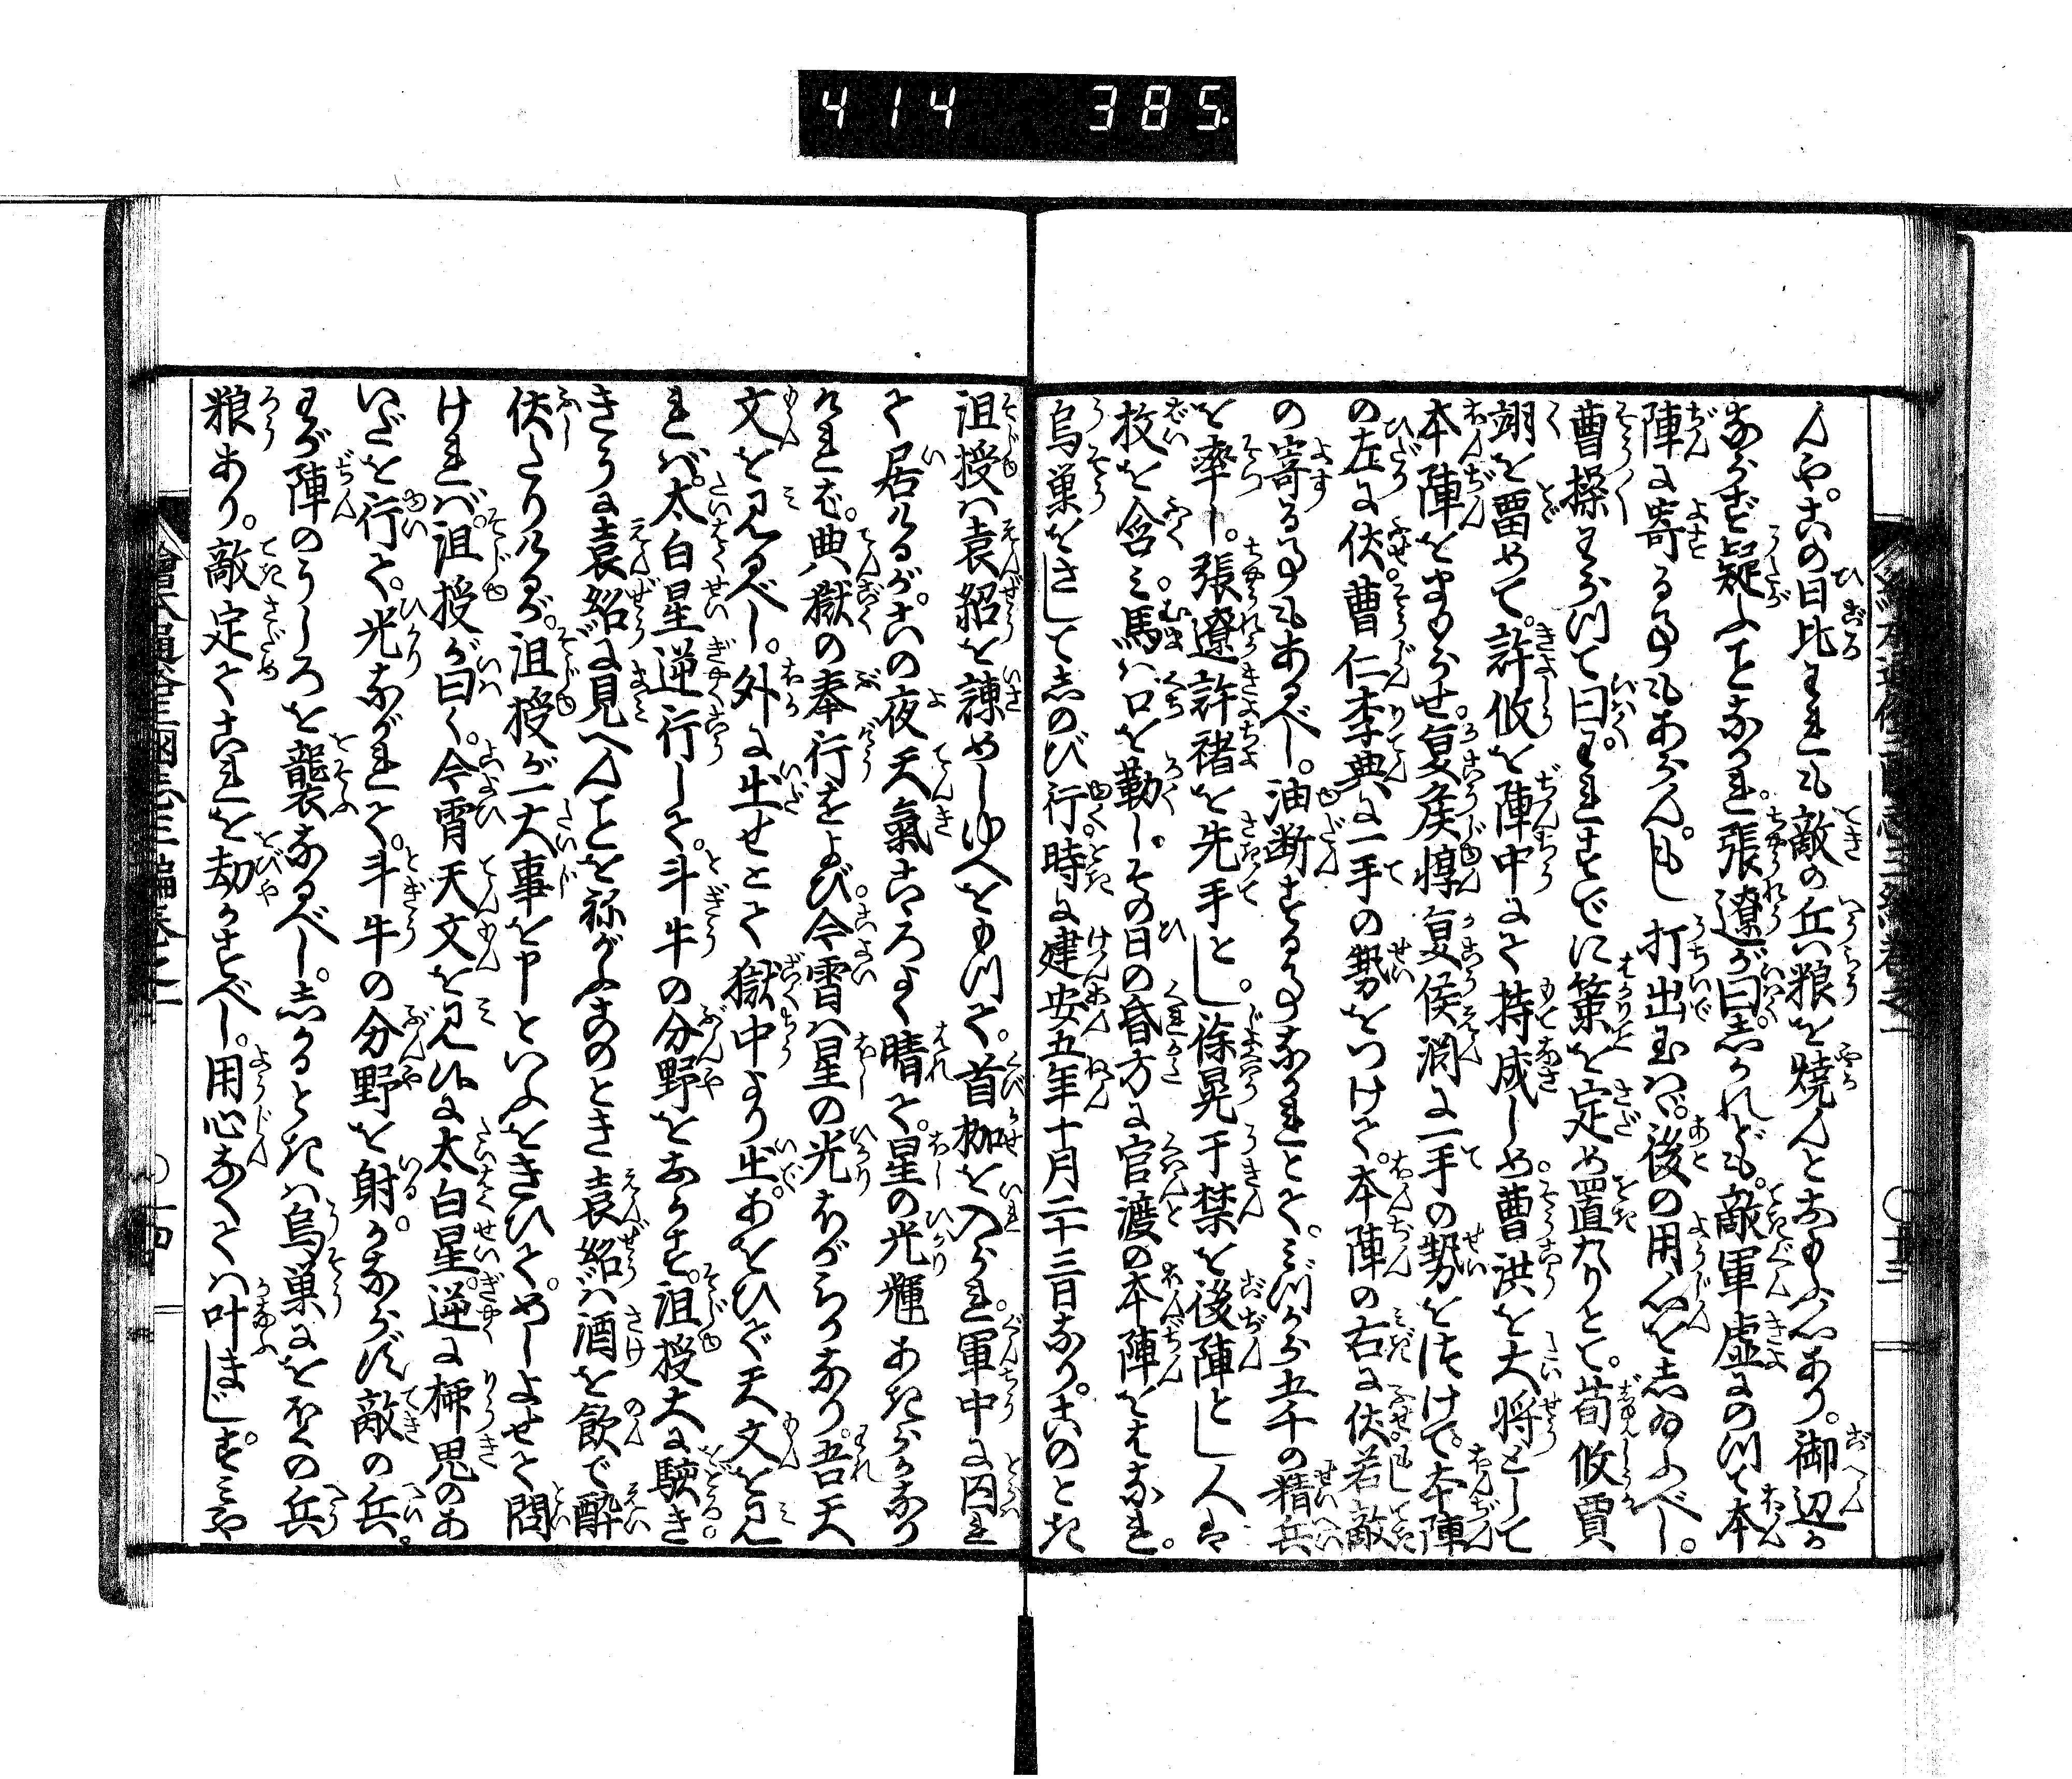 414 385
んや。この日比われも敵の兵粮を焼んとおもふ心あり。御辺か
ならず疑ふことなかれ。張遼が曰しかれども。敵軍虚にのつて本
陣に寄る事もあらん。もし打出玉はゞ。後の用心をしゐふべし。
曹操わらつて曰。われすでに策を定め置たりとて。荀攸賈
詡を畱めて。許攸を陣中にて持成しめ。曹洪を大将として
本陣をまもらせ。夏侯惇夏侯淵に一手の勢をつけて。本陣
の左に伏。曹仁李典に一手の勢をつけて。本陣の右に伏。若敵
の寄る事もあるべし。油断する事なかれとて。みづから五千の精兵
を率し。張遼許褚を先手とし。徐晃于禁を後陣とし人は
枚を含み。馬は口を勒し。その日の昏方に官渡の本陣をはなれ。
烏巣をさして志のび行。時に建安五年十月二十三日なり。このとき
沮授は袁紹を諌めしゆへをもつて。首枷を入られ。軍中に囚れ
て居けるが。この夜天氣こゝろよく晴て。星の光輝あきらかなり
ければ。典獄の奉行をよび。今霄は星の光ほがらかなり。吾天
文を見るべし。外に出せとて獄中より出。あをひで天文を見
れば。太白星逆行して。斗牛の分野をおかす。沮授大に駭き
きうに袁紹に見へんことをねがふ。このとき袁紹は酒を飲で酔
伏たりけるが。沮授が一大事を申といふをきひて。めしよせて問
ければ。沮授が曰く。今霄天文を見候に太白星。逆に柳鬼のあ
いだを行て。光ながれて。斗牛の分野を射る。かならず敵の兵。
わが陣のうしろを襲なるべし。しかるときは烏巣にをほくの兵
粮あり。敵定てこれを劫かすべし。用心なくては叶まじ。すみや